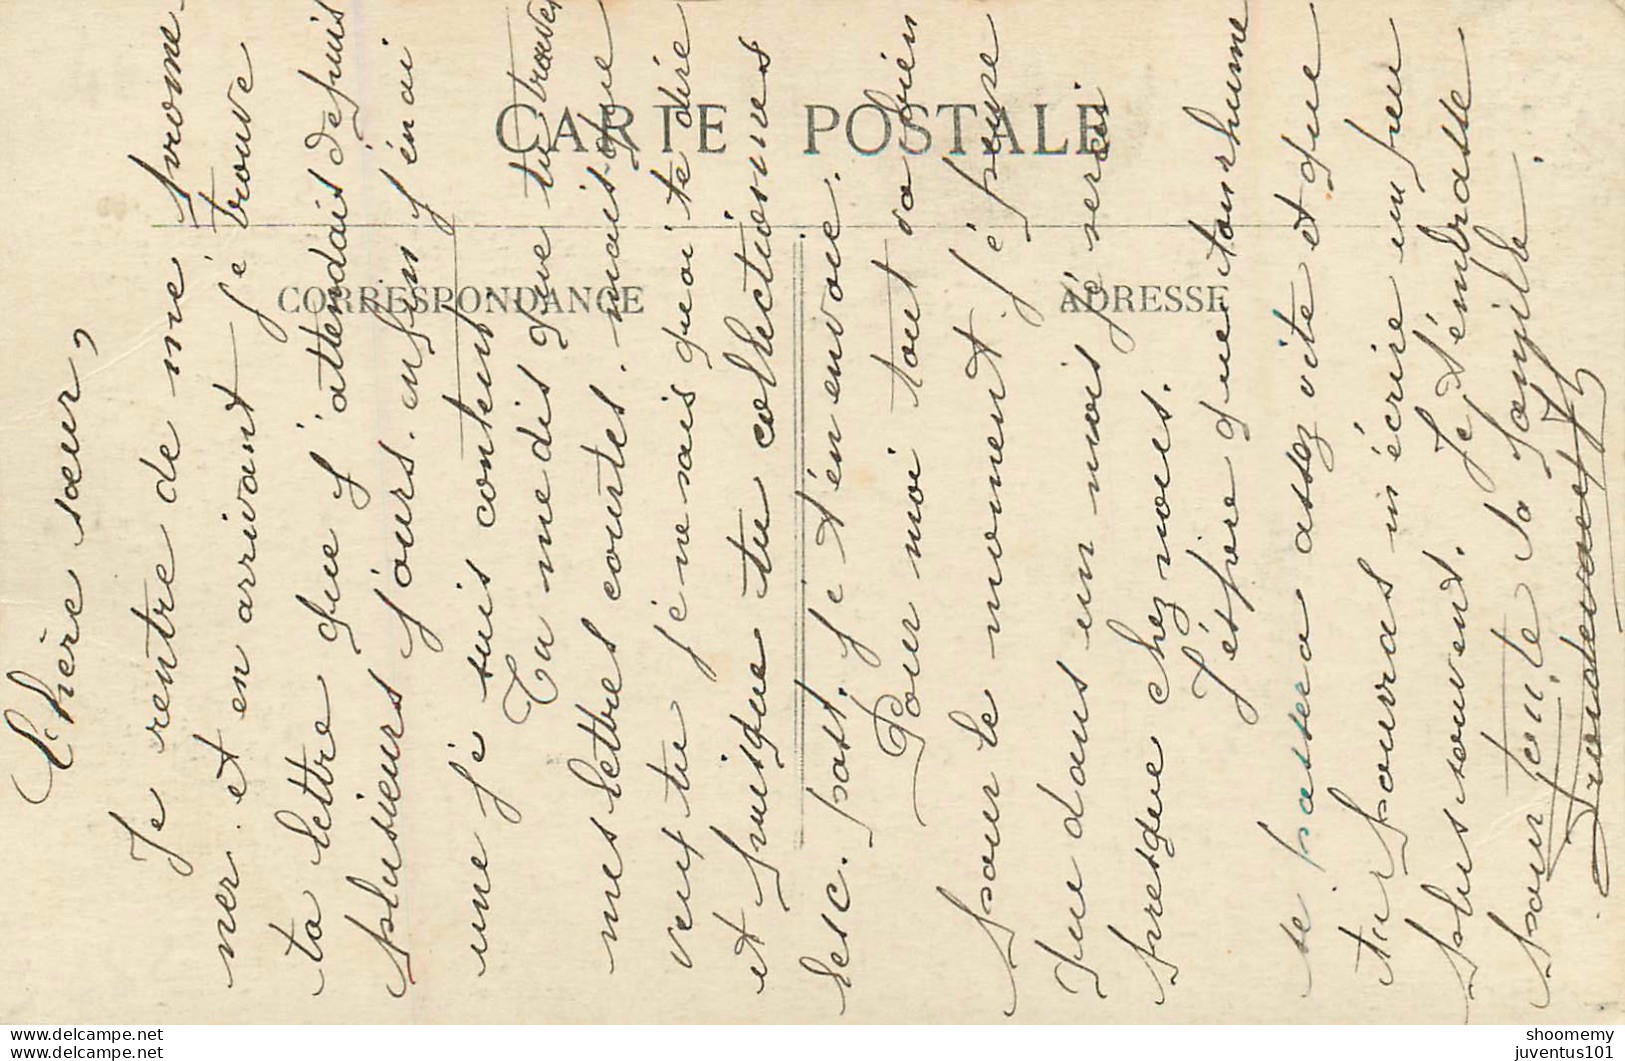 CARTE POSTALE
CORRESPONDANCE
ADRESSE
Chère sœur,
Je rentre de me prome-
ner. et en arrivant j'é trouve
ta lettre que j'attendais depuis
plusieurs jours. enfin j'én ai
une je suis contente
Tu me dis que tu trouves
mes lettres courtes. mais que
veux tu je ne sais quoi te dire
et puisque tu collectionnes
les c. post. je t'én envoie.
Pour moi tout va bien
pour le moment. j'é pense
que dans un mois jé serai
presque chez nous.
J'éspère que ton rhume
se passera assez vite et que
tu pourras m'écrire un peu
plus souvent. Je t'émbrasse
pour toute la famille.
shoomemy
juventus101
www.delcampe.net
www.delcampe.net